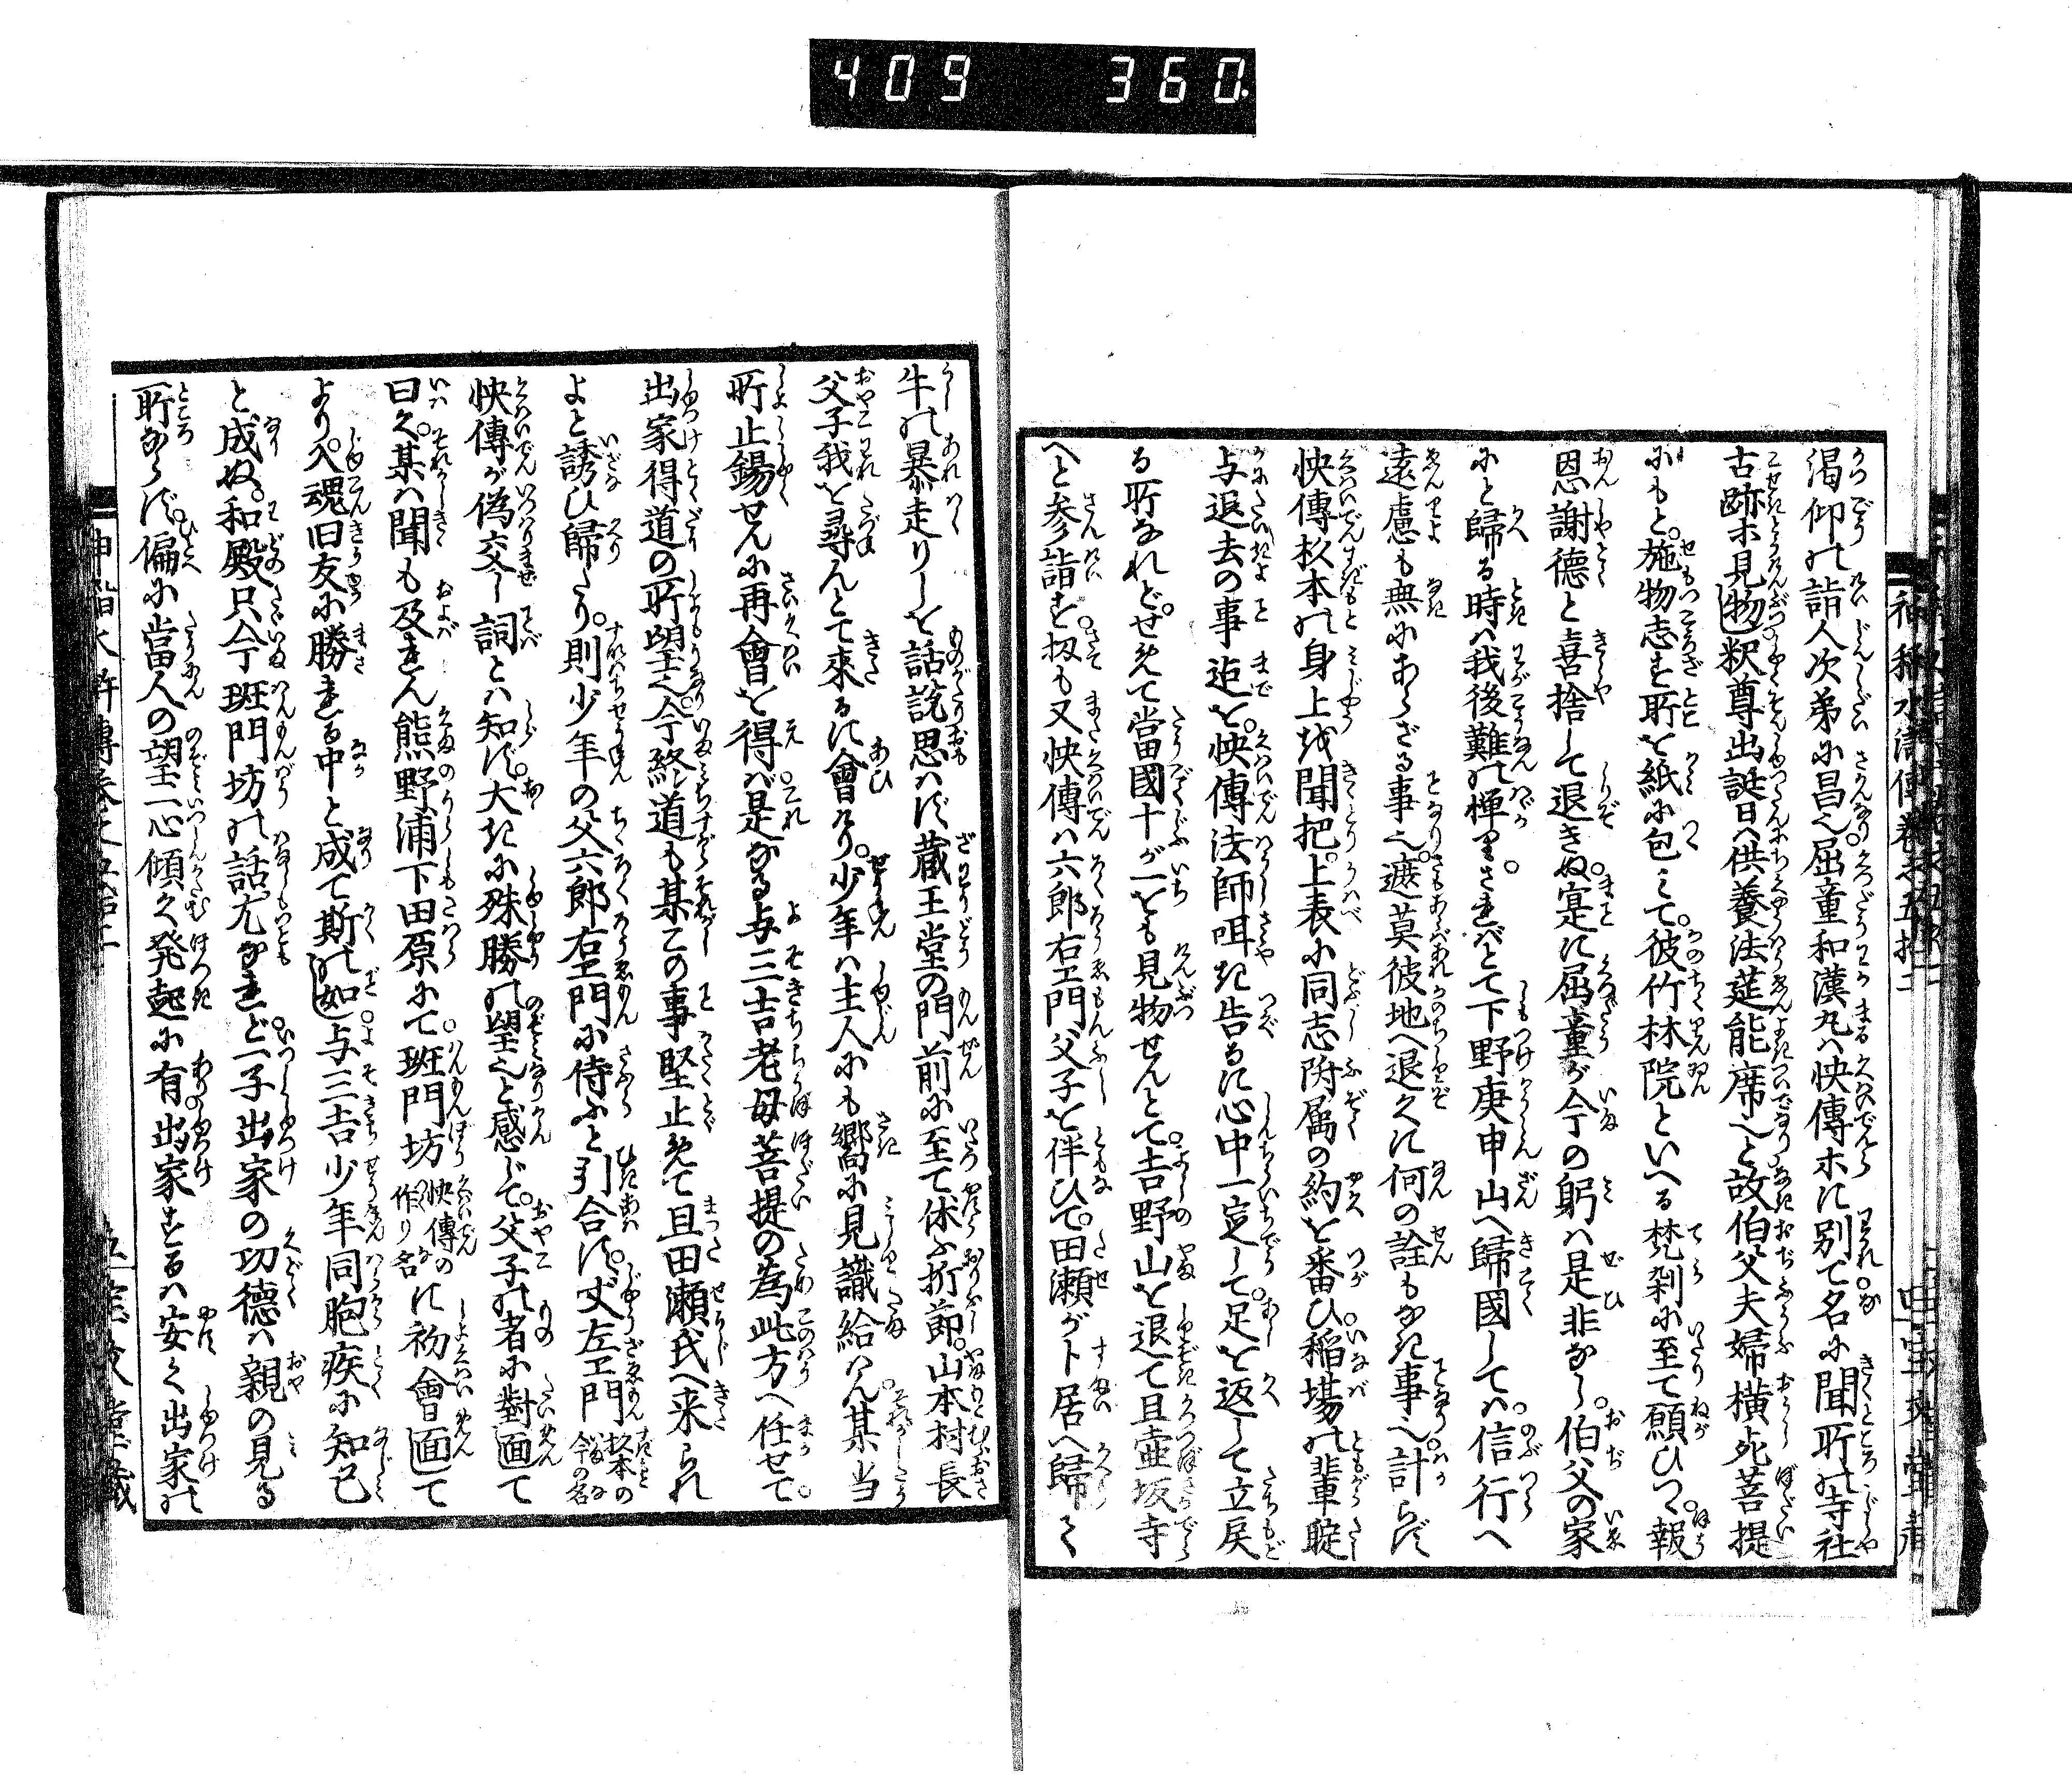 409 360
渇仰の詣人次弟に昌也屈童和漢丸ハ快傳ホに別て名に聞所の寺社
古跡ホ見物し釈尊出誕日ハ供養法莚能席也と故伯父夫婦横死菩提
にもと施物志す所を紙に包ミて彼竹林院といへる梵刹に至て願ひつ報
恩謝徳と喜捨して退きぬ寔に屈童が今の躬ハ是非なし伯父の家
にと歸る時ハ我後難の憚りさればとて下野庚申山へ歸國してハ信行へ
遠慮も無にあらざる事也遮莫彼地へ退くに何の詮もなき事也計らず
快傳杉本の身上を聞把上表に同志附属の約を番ひ稲場の輩睦
与退去の事迄を快傳法師咡き告るに心中一定して足を返して立戻
る所なれどせめて當國十が一をも見物せんとて吉野山を退て且壷坂寺
へと参詣す扨も又快傳ハ六郎右エ門父子を伴ひて田瀬が卜居へ歸りて
牛の暴走りしを話説思ハず蔵王堂の門前に至て休ふ折節山本村長
父子我を尋んとて來るに會けり少年ハ主人にも嚮に見識給けん某当
所止錫せんに再會を得バ是なる与三吉老母菩提の為此方へ任せて
出家得道の所望也今終道も某この事堅止めて且田瀬氏へ来られ
よと誘ひ歸たり則少年の父六郎右エ門に侍ふと引合す丈左エ門杉本の今の名
快傳が偽交し詞とハ知ず大きに殊勝の望也と感じて父子の者に對面て
曰く某ハ聞も及けん熊野浦下田原にて班門坊快傳の作り名に初會面て
より入魂旧友に勝れる中と成て斯の如し与三吉少年同胞疾に知己
と成ぬ和殿只今班門坊の話尤なれど一子出家の功徳ハ親の見る
所ならず偏に當人の望一心傾く発起に有出家するハ安く出家の